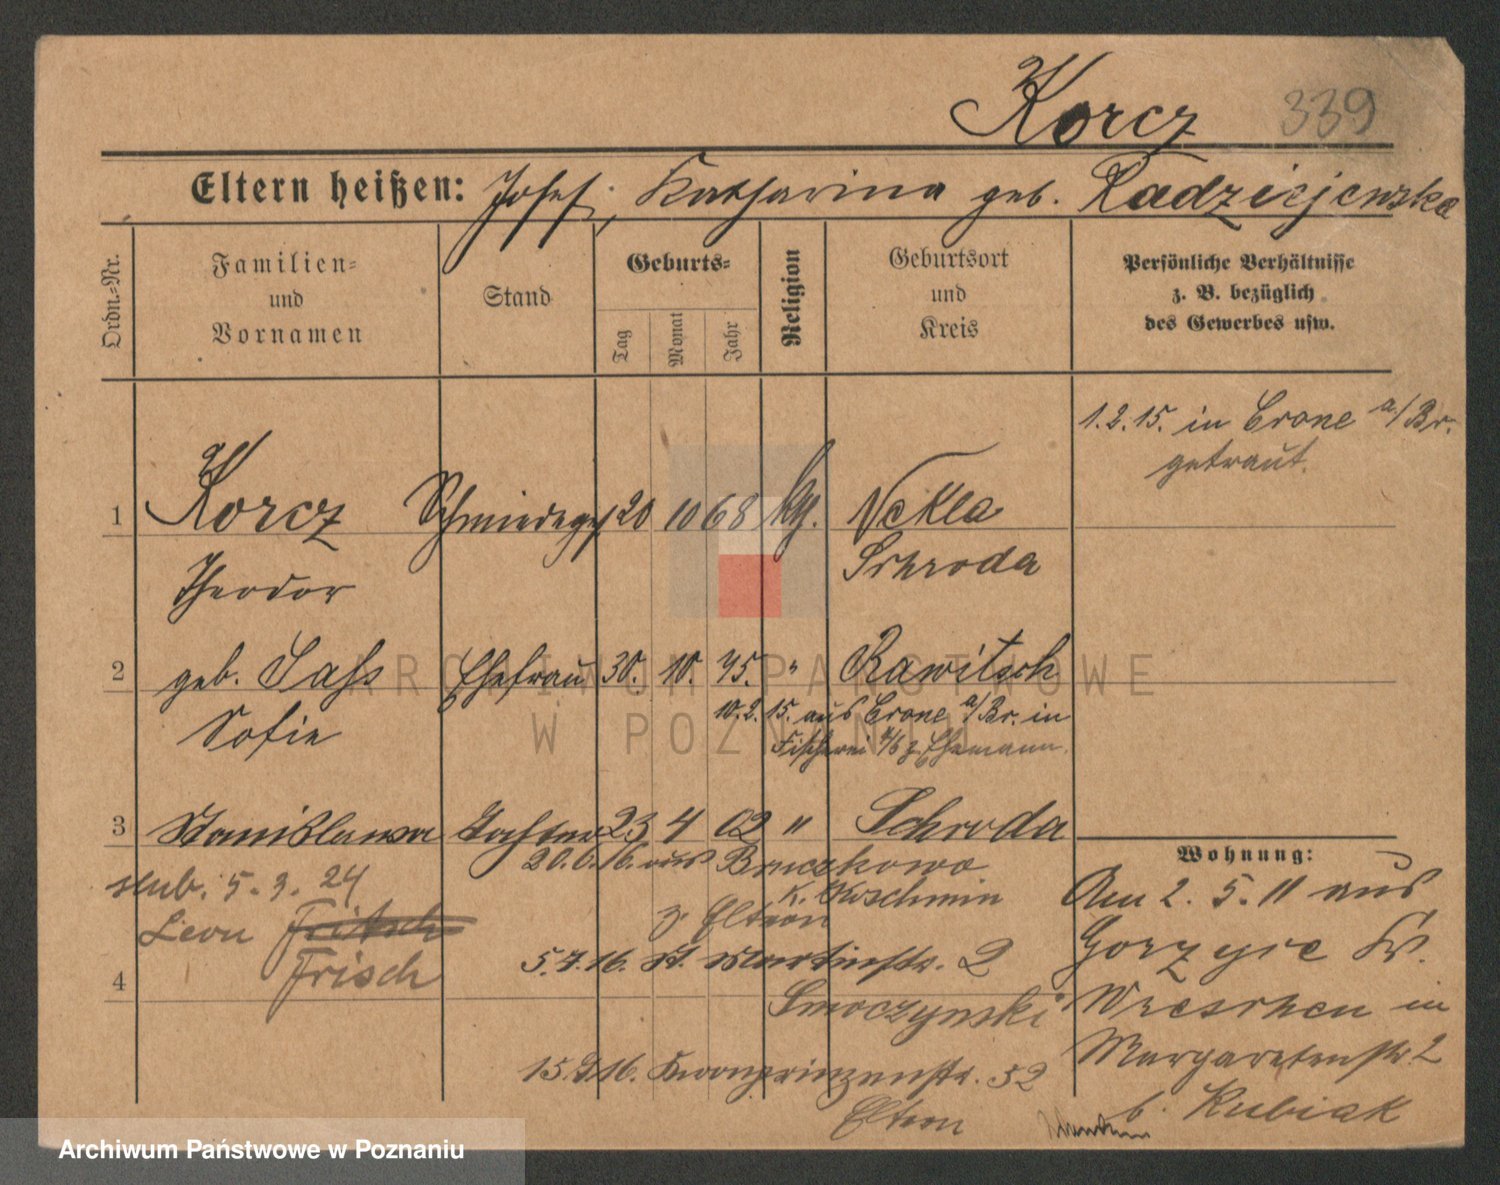 Korcz 339
Eltern heißen: Josef, Katharina geb. Radziejewska
Ordn.-Nr.
Familien-
und
Vornamen
Stand
Geburts-
Tag
Monat
Jahr
Religion
Geburtsort
und
Kreis
Persönliche Verhältnisse
z. B. bezüglich
des Gewerbes usw.
1.2.15. in Crone a/Br.
getraut.
1 Korcz Schmiedeges 20 10 68 kth. Nekla
Theodor Schroda
2 geb. Sass Ehefrau 30. 10. 75. " Rawitsch
Sofie
10.2.15. aus Crone a/Br. in
Fischerei 4/6 z. Ehemann.
3 Stanislawa Tochter 23 4 02 " Schroda
20.6.16. aus Bruczkowo
K. Koschmin
z. Eltern
slub. 5.3.24
Leon Fritsch
Frisch
4
5.7.16. St. Martinstr. 2
Smoczynski
15.9.16. Kronprinzenstr. 52
Eltern
Wohnung:
Am 2.5.11 aus
Gorzyce Kr.
Wreschen in
Margaretenstr. 2
b. Kubiak
ARCHIWUM PAŃSTWOWE
W POZNANIU
Archiwum Państwowe w Poznaniu